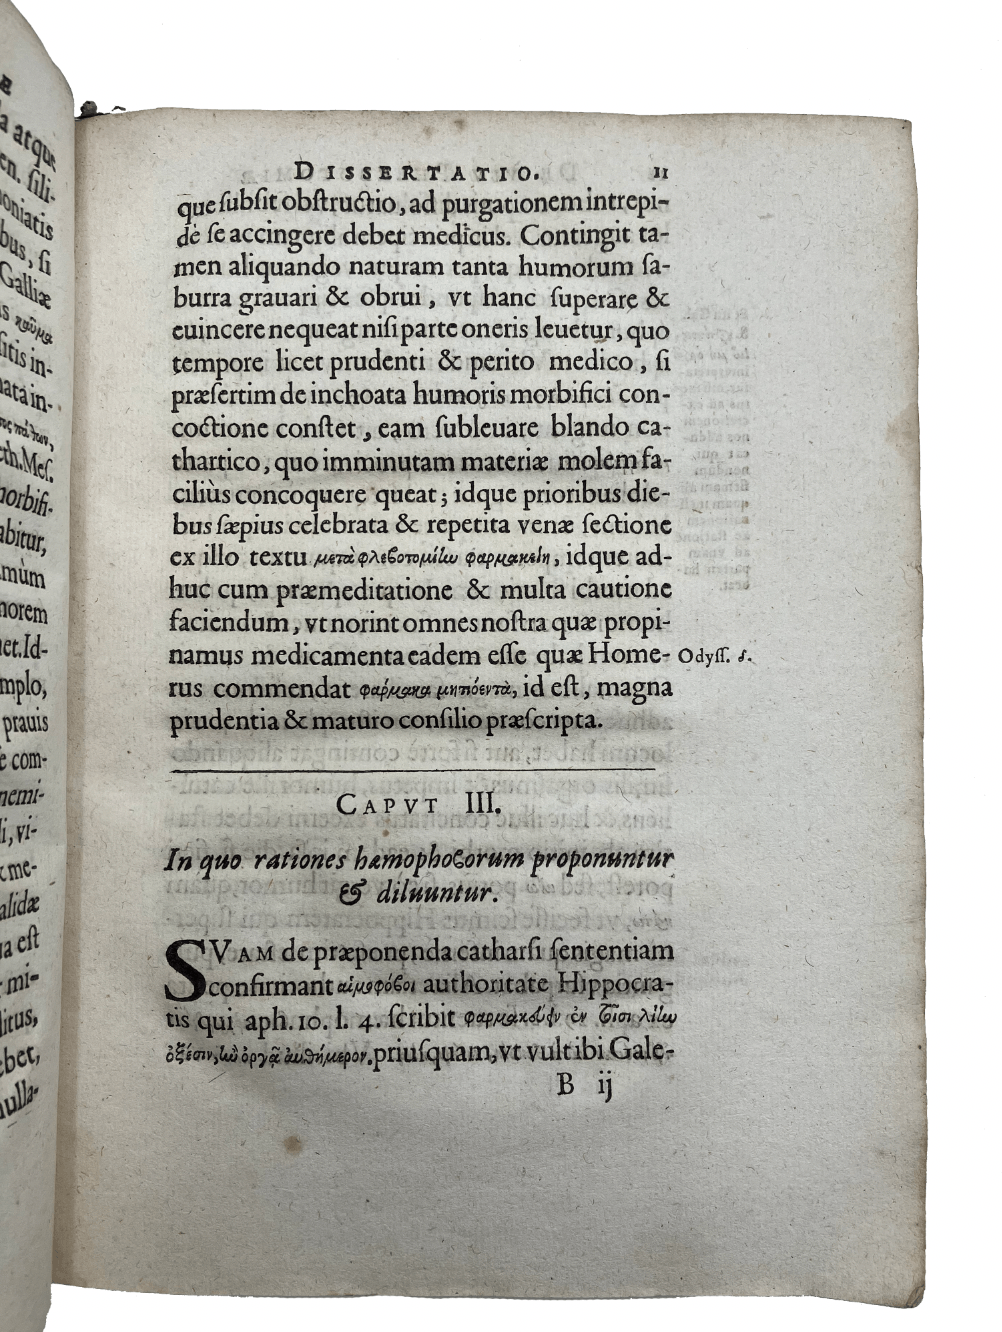 Æ
a atque
en. sili-
oniatis
bus, si
Galliæ
s καῦμα
sitis in-
nata in-
eth. Mes.
morbifi-
abitur,
mùm
morem
net. Id-
mplo,
prauis
e com-
nemi-
li, vi-
me-
alidæ
ua est
mi-
litus,
ebet,
nulla-
DISSERTATIO. 11
que subsit obstructio, ad purgationem intrepi-
dè se accingere debet medicus. Contingit ta-
men aliquando naturam tanta humorum sa-
burra grauari & obrui, vt hanc superare &
euincere nequeat nisi parte oneris leuetur, quo
tempore licet prudenti & perito medico, si
præsertim de inchoata humoris morbifici con-
coctione constet, eam subleuare blando ca-
thartico, quo imminutam materiæ molem fa-
ciliùs concoquere queat; idque prioribus die-
bus sæpius celebrata & repetita venæ sectione
ex illo textu μετὰ φλεβοτομίω φαρμακείη, idque ad-
huc cum præmeditatione & multa cautione
faciendum, vt norint omnes nostra quæ propi-
namus medicamenta eadem esse quæ Home- Odyss. δ.
rus commendat φαρμακα μητιόεντα, id est, magna
prudentia & maturo consilio præscripta.
CAPVT III.
In quo rationes hæmophoborum proponuntur
& diluuntur.
SVAM de præponenda catharsi sententiam
confirmant αἱμοφόβοι authoritate Hippocra-
tis qui aph. 10. l. 4. scribit φαρμακεύειν ἐν τοῖσι λίω
ὀξέσιν, ἰὼ ὀργᾷ αὐθήμερον. priusquam, vt vult ibi Gale-
B ij